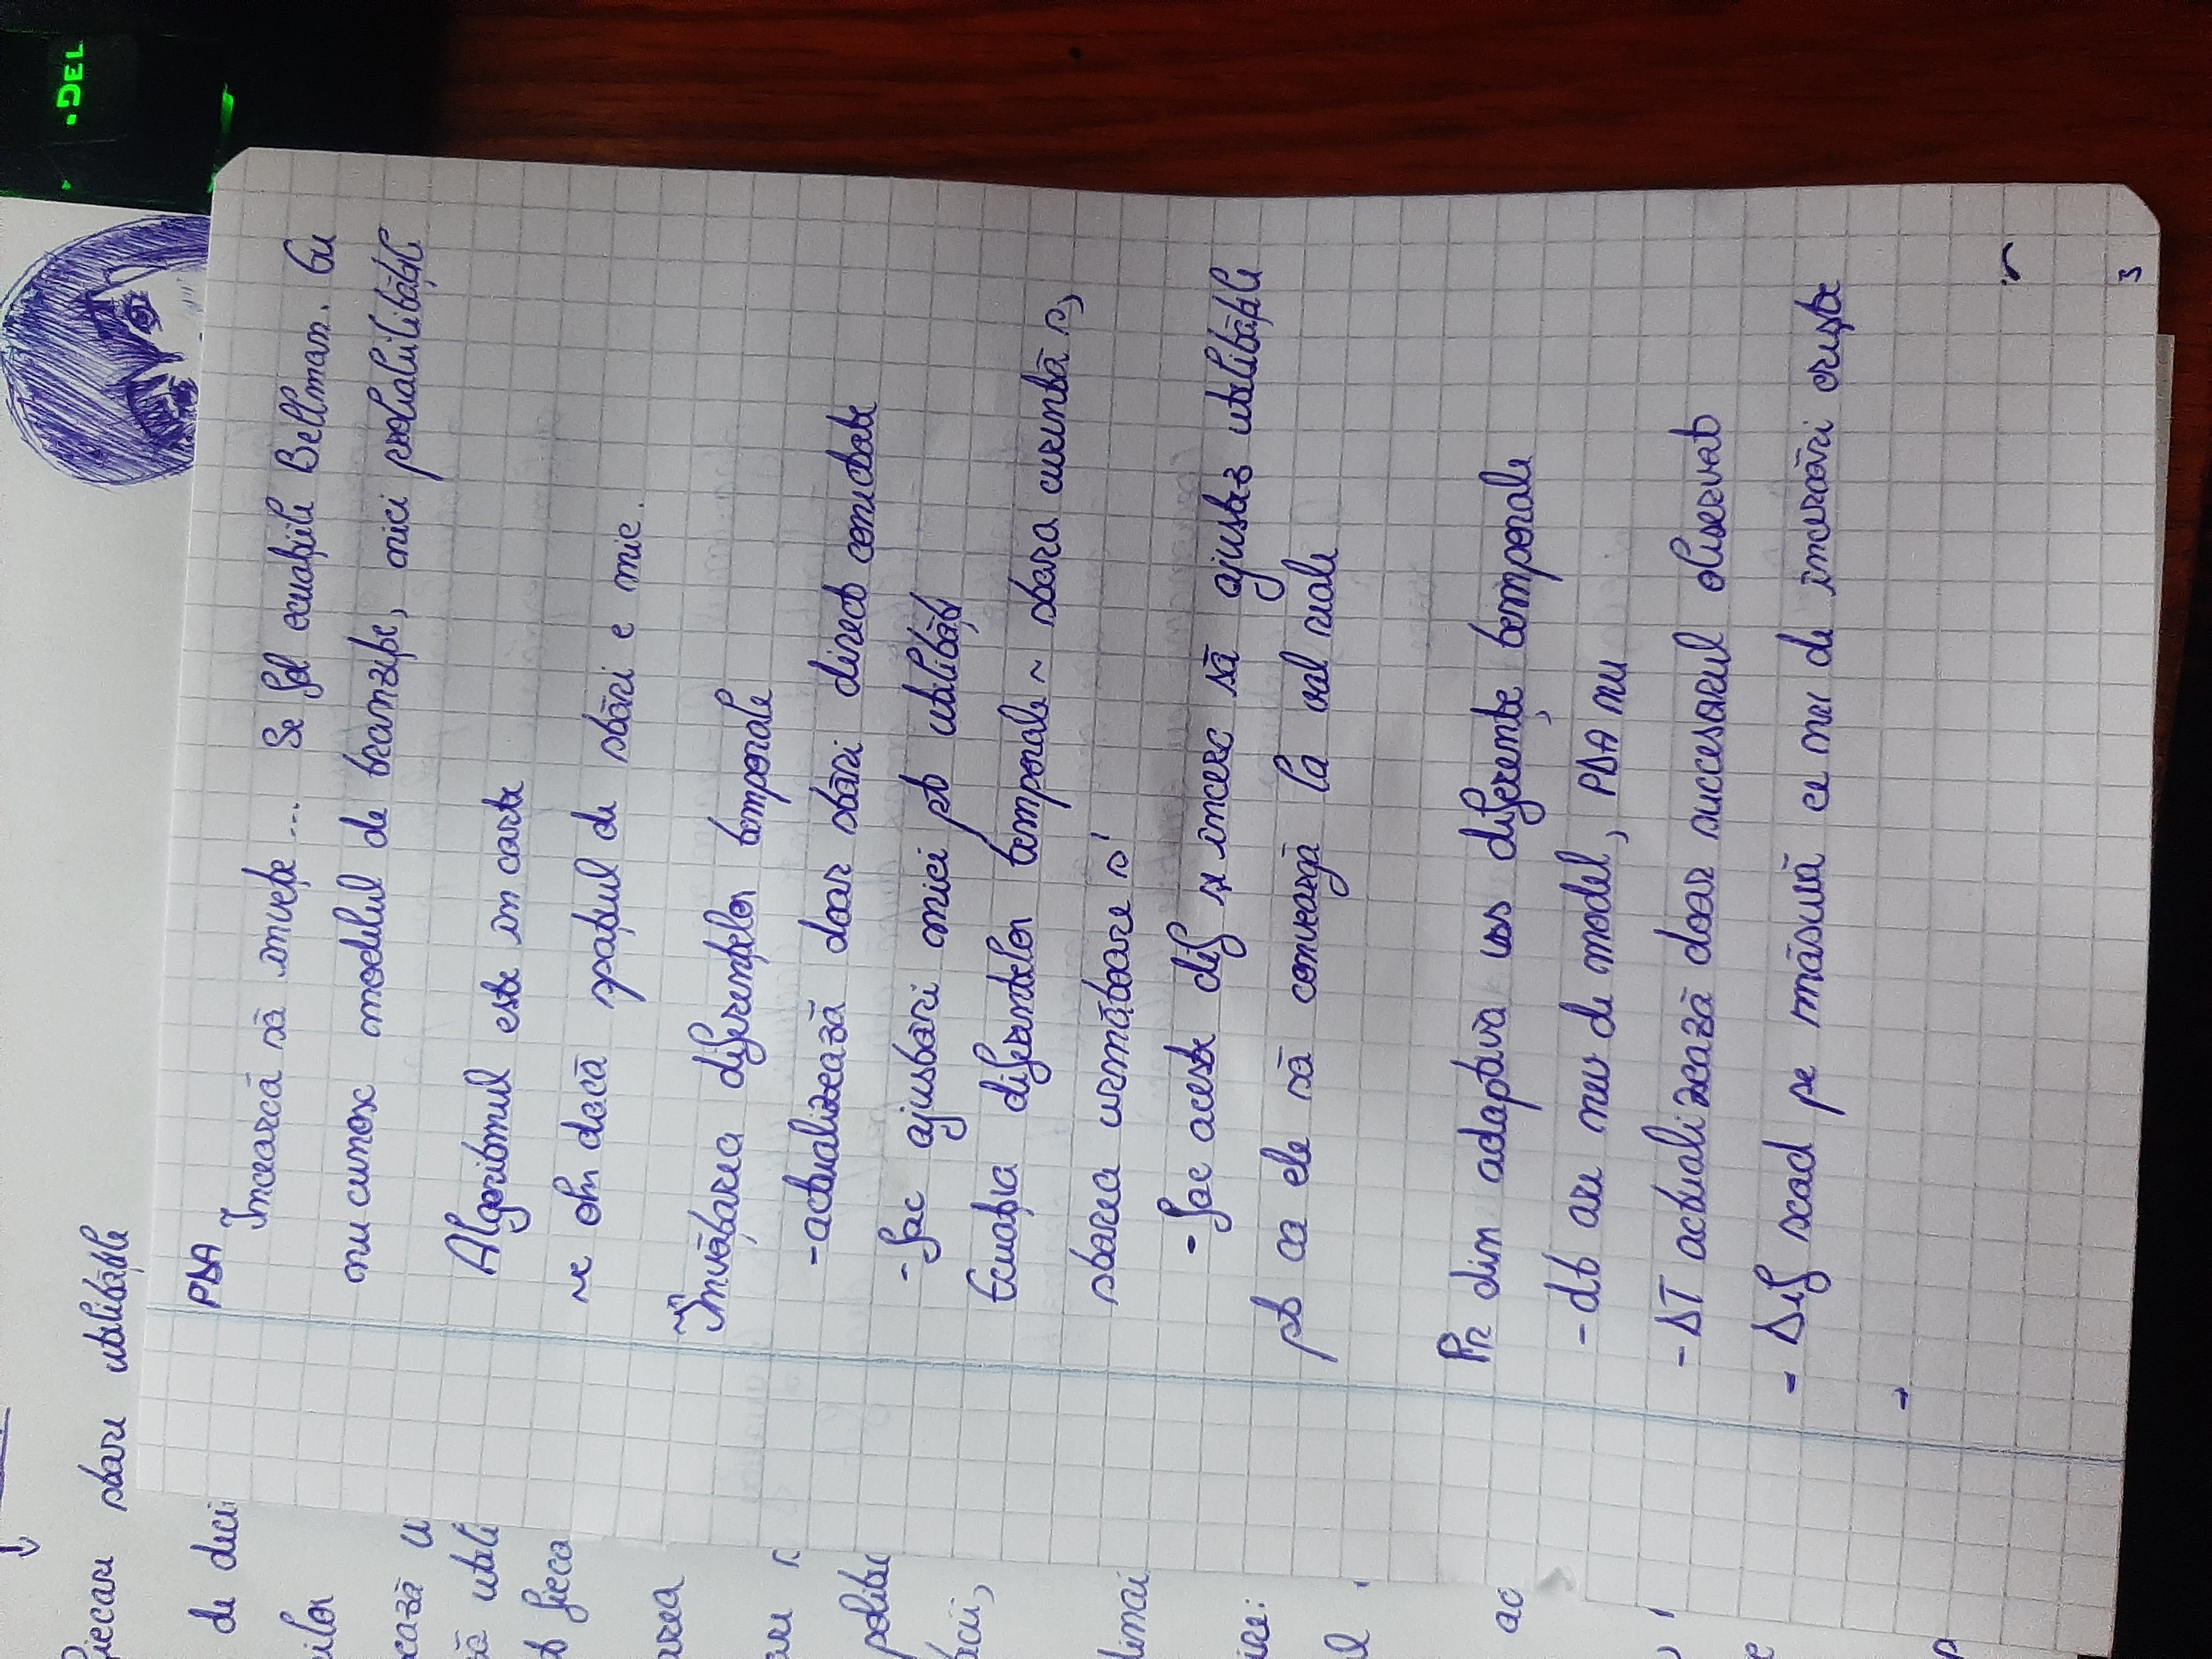 fiecare stare utilitățile
.DEL
de deci
ilor
ează u
ă utili
t fieca
area
politic
imai
ire:
ac
PDA
Încearcă să învețe ... Se fol ecuațiile Bellman. Eu
nu cunosc modelul de tranziție, nici probabilitățile
Algoritmul este in carte
~e ok dacă spațiul de stări e mic.
Învățarea diferențelor temporale
-actualizează doar stări direct conectate
-fac ajustări mici pt utilități
Ecuația diferentelor temporale ~ starea curentă s,
starea următoare s'
-fac aceste dif și încerc să ajustez utilitățile
pt ca ele să conveargă la val reale
Pr din adaptivă vss diferențe temporale
-dt are nev de model, PDA nu
-DT actualizează doar succesorul observat
- Dif scad pe măsură ce nr de încercări crește
-
3